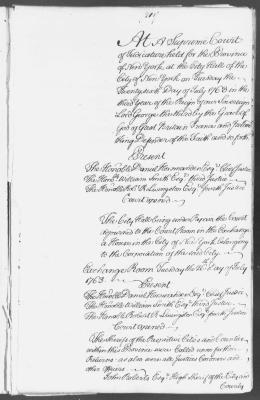 At A Supreme Court
of Judicature held for the Province
of New York, at the City Hall of the
City of New York on Tuesday the
Twenty sixth Day of July 1763 in the
third Year of the Reign of our Sovereign
Lord George the third by the Grace of
God of Great Britain France and Ireland
King Defender of the Faith and so forth
Present
The Honble Daniel Horsmanden Esqr Chief Justice
The Honble William Smith Esqr third Justice
The Honble Robt R Livingston Esqr fourth Justice
Court opened
The City Hall being under Repair the Court
adjourned to the Court Room in the Exchange
a House in the City of New York belonging
to the Corporation of the said City
Exchange Room Tuesday the 26 Day of July
1763
Present
The Honble Daniel Horsmanden Esqr Chief Justice
The Honble William Smith Esqr third Justice
The Honble Robert R Livingston Esqr fourth Justice
Court opened
The Sheriffs of the Cities and Counties
within this Province were Called upon for their
Returns as also were all Justices Coroners and
other Officers
John Roberts Esqr High Sheriff of the City and
County